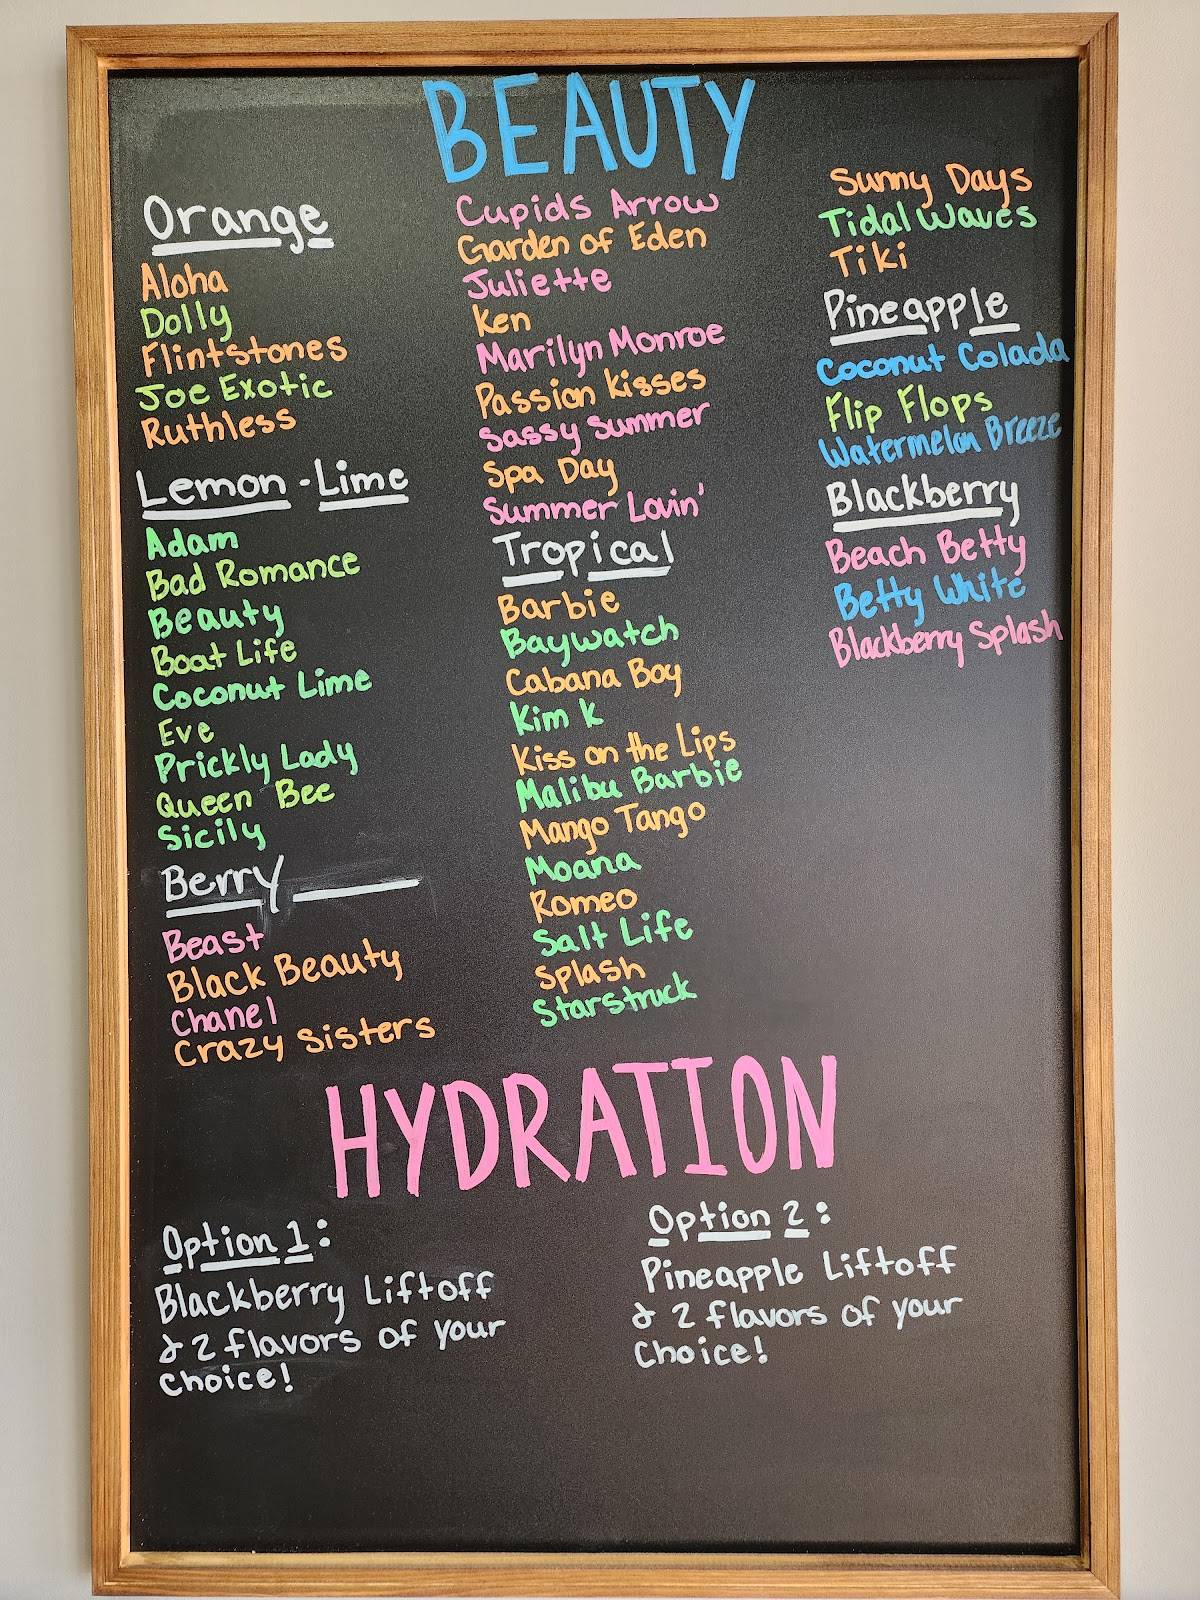 BEAUTY
Orange
Aloha
Dolly
Flintstones
Joe Exotic
Ruthless
Lemon - Lime
Adam
Bad Romance
Beauty
Boat Life
Coconut Lime
Eve
Prickly Lady
Queen Bee
Sicily
Berry
Beast
Black Beauty
Chanel
Crazy Sisters
Cupids Arrow
Garden of Eden
Juliette
Ken
Marilyn Monroe
Passion Kisses
Sassy Summer
Spa Day
Summer Lovin'
Tropical
Barbie
Baywatch
Cabana Boy
Kim K
Kiss on the Lips
Malibu Barbie
Mango Tango
Moana
Romeo
Salt Life
Splash
Starstruck
Sunny Days
Tidal Waves
Tiki
Pineapple
Coconut Colada
Flip Flops
Watermelon Breeze
Blackberry
Beach Betty
Betty White
Blackberry Splash
HYDRATION
Option 1:
Blackberry Liftoff
& 2 flavors of your
choice!
Option 2:
Pineapple Liftoff
& 2 flavors of your
Choice!